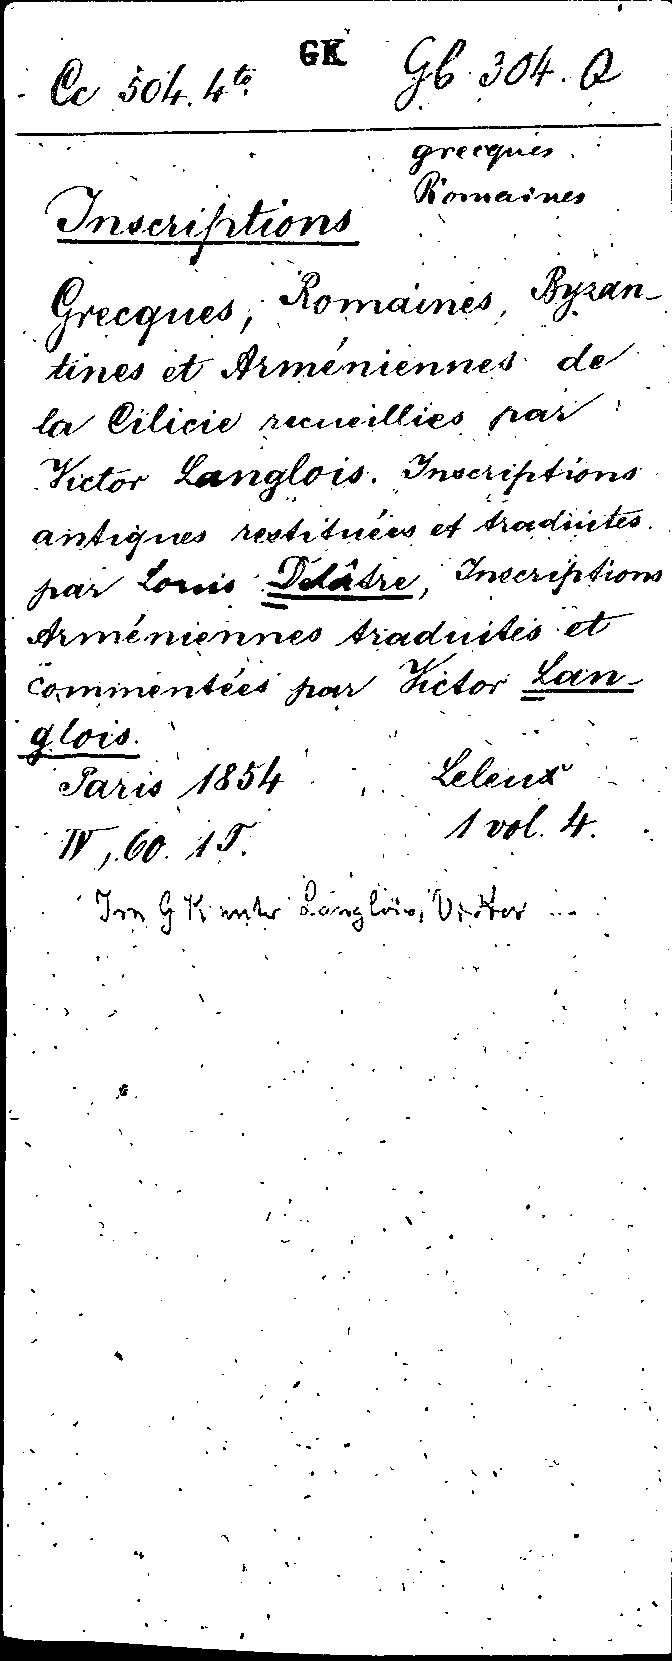 GK
Cc 504. 4to. Gb 304. Q
grecques
Romaines
Inscriptions
Grecques, Romaines, Byzan-
tines et Arméniennes de
la Cilicie recueillies par
Victor Langlois. Inscriptions
antiques restituées et traduites
par Louis Delâtre, Inscriptions
Arméniennes traduites et
commentées par Victor Lan-
glois.
Paris 1854 Leleux
IV, 60. 1 T. 1 vol. 4.
Im GK unter Langlois, Victor